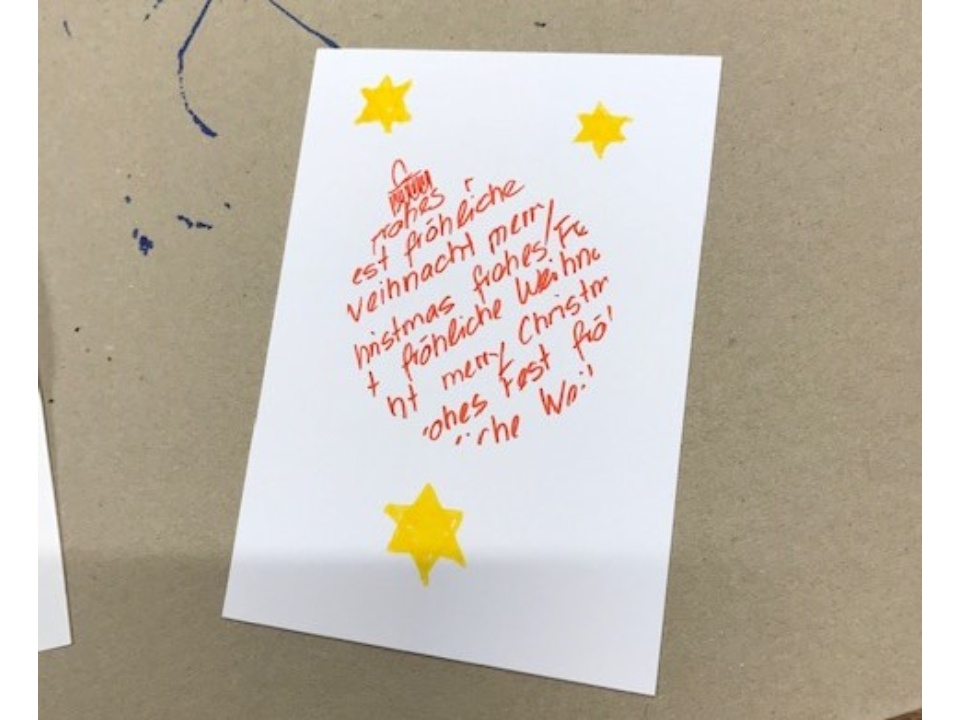 rohes
est fröhliche
veihnacht merry
hristmas frohes/Fe
t fröhliche Weihna
nt merry Christm
ohes Fest frö
che Wei